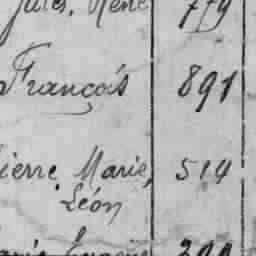 Jules, René 779
François 891
ierre Marie, 514
Léon